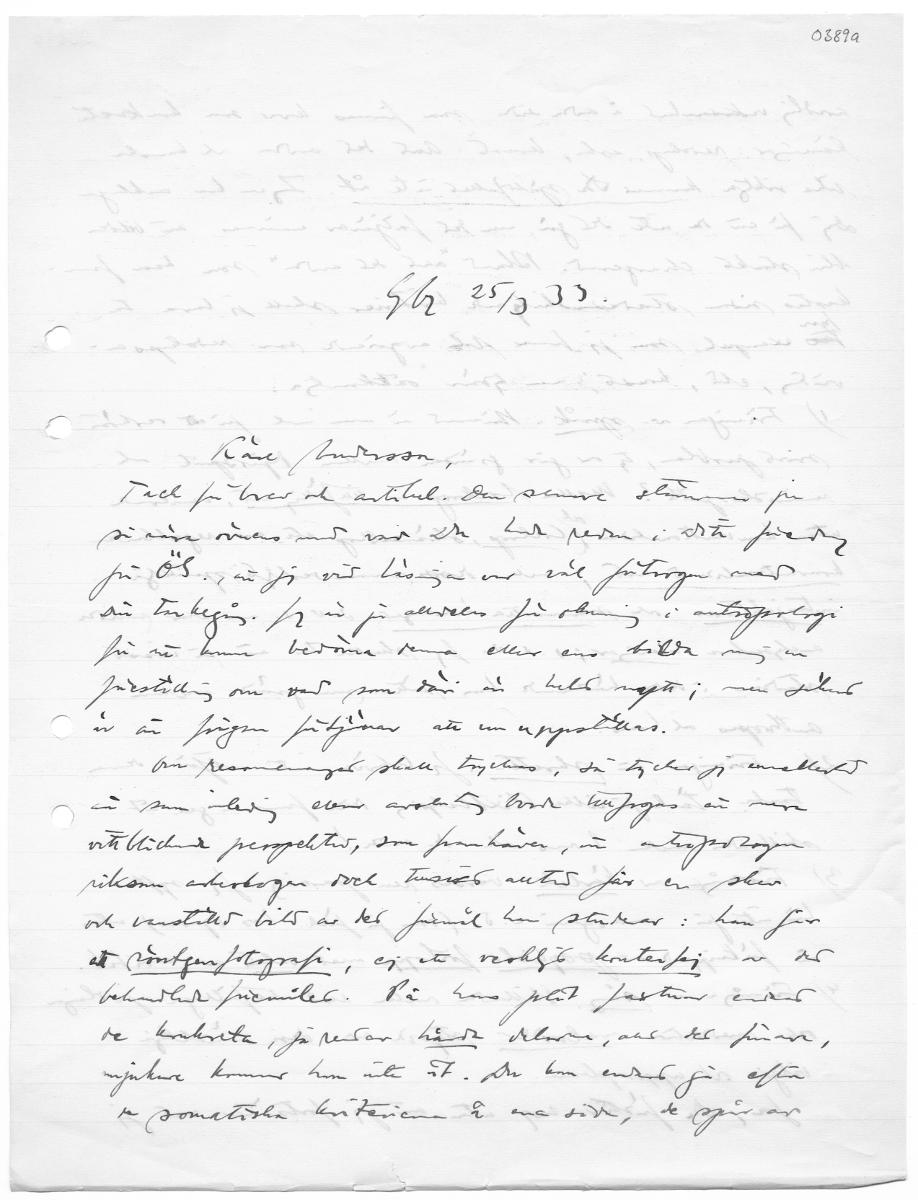 0389a
Gbg 25/3 33.
Käre Andersson,
Tack för brev och artikel. Den senare stämmer ju
så nära överens med vad Du hade redan i Ditt föredrag
för ÖS., att jag vid läsningen var väl förtrogen med
Din tankegång. Jag är ju alldeles för okunnig i antropologi
för att kunna bedöma denna eller ens bilda mig en
föreställning om vad som däri är helt nytt; men säkert
är att frågan förtjänar att
Om resonemanget skall tryckas, så tycker jag emellertid
att som inledning eller avslutning borde tillfogas en mera
vittblickande perspektiv, som framhäver, att antropologen
liksom arkeologen dock alltid får en skev
och vanställd bild av det föremål han studerar: han får
ett röntgenfotografi, ej ett verkligt konterfej av det
behandlade föremålet. På hans plåt fastnar endast
de konkreta, hårda delarna, allt det finare,
mjukare kommer han inte åt. Du kan endast gå efter
de somatiska kriterierna å ena sidan, de spår av